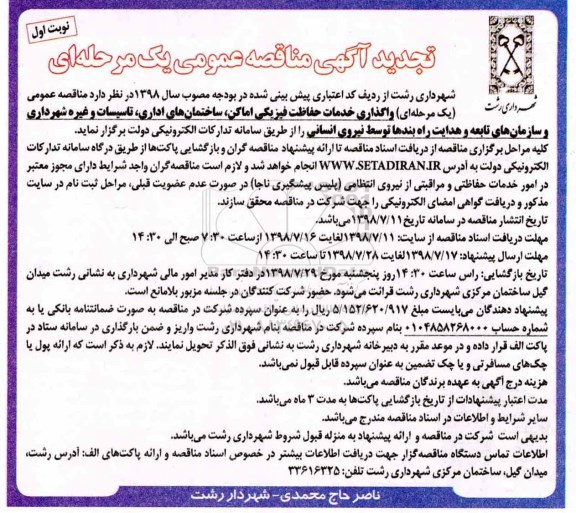 نوبت اول
تجدید آگهی مناقصه عمومی یک مرحله‌ای
شهرداری رشت
شهرداری رشت از ردیف کد اعتباری پیش بینی شده در بودجه مصوب سال ۱۳۹۸در نظر دارد مناقصه عمومی
(یک مرحله‌ای) واگذاری خدمات حفاظت فیزیکی اماکن، ساختمان‌های اداری، تاسیسات و غیره شهرداری
و سازمان‌های تابعه و هدایت راه بندها توسط نیروی انسانی را از طریق سامانه تدارکات الکترونیکی دولت برگزار نماید.
کلیه مراحل برگزاری مناقصه از دریافت اسناد مناقصه تا ارائه پیشنهاد مناقصه گران و بازگشایی پاکت‌ها از طریق درگاه سامانه تدارکات
الکترونیکی دولت به آدرس WWW.SETADIRAN.IR انجام خواهد شد و لازم است مناقصه‌گران واجد شرایط دارای مجوز معتبر
در امور خدمات حفاظتی و مراقبتی از نیروی انتظامی (پلیس پیشگیری ناجا) در صورت عدم عضویت قبلی، مراحل ثبت نام در سایت
مذکور و دریافت گواهی امضای الکترونیکی را جهت شرکت در مناقصه محقق سازند.
تاریخ انتشار مناقصه در سامانه تاریخ ۱۳۹۸/۷/۱۱می‌باشد.
مهلت دریافت اسناد مناقصه از سایت: ۱۳۹۸/۷/۱۱لغایت ۱۳۹۸/۷/۱۶ ازساعت ۷:۳۰ صبح الی ۱۴:۳۰
مهلت ارسال پیشنهاد: ۱۳۹۸/۷/۱۷لغایت ۱۳۹۸/۷/۲۸ تا ساعت ۱۴:۳۰
تاریخ بازگشایی: راس ساعت ۱۴:۳۰ روز پنجشنبه مورخ ۱۳۹۸/۷/۲۹در دفتر کار مدیر امور مالی شهرداری به نشانی رشت میدان
گیل ساختمان مرکزی شهرداری رشت قرائت می‌شود. حضور شرکت کنندگان در جلسه مزبور بلامانع است.
پیشنهاد دهندگان می‌بایست مبلغ ۵/۱۵۲/۶۲۰/۹۱۷ ریال را به عنوان سپرده شرکت در مناقصه به صورت ضمانتنامه بانکی یا به
شماره حساب ۰۱۰۴۸۵۸۲۶۸۰۰۰ بنام سپرده شرکت در مناقصه بنام شهرداری رشت واریز و ضمن بارگذاری در سامانه ستاد در
پاکت الف قرار داده و در موعد مقرر به دبیرخانه شهرداری رشت به نشانی فوق الذکر تحویل نمایند. لازم به ذکر است که ارائه پول یا
چک‌های مسافرتی و یا چک تضمین به عنوان سپرده قابل قبول نمی‌باشد.
هزینه درج آگهی به عهده برندگان مناقصه می‌باشد.
مدت اعتبار پیشنهادات از تاریخ بازگشایی پاکت‌ها به مدت ۳ ماه می‌باشد.
سایر شرایط و اطلاعات در اسناد مناقصه مندرج می‌باشد.
بدیهی است شرکت در مناقصه و ارائه پیشنهاد به منزله قبول شروط شهرداری رشت می‌باشد.
اطلاعات تماس دستگاه مناقصه‌گزار جهت دریافت اطلاعات بیشتر در خصوص اسناد مناقصه و ارائه پاکت‌های الف: آدرس رشت،
میدان گیل، ساختمان مرکزی شهرداری رشت تلفن: ۳۳۶۱۶۳۲۵
ناصر حاج محمدی- شهردار رشت